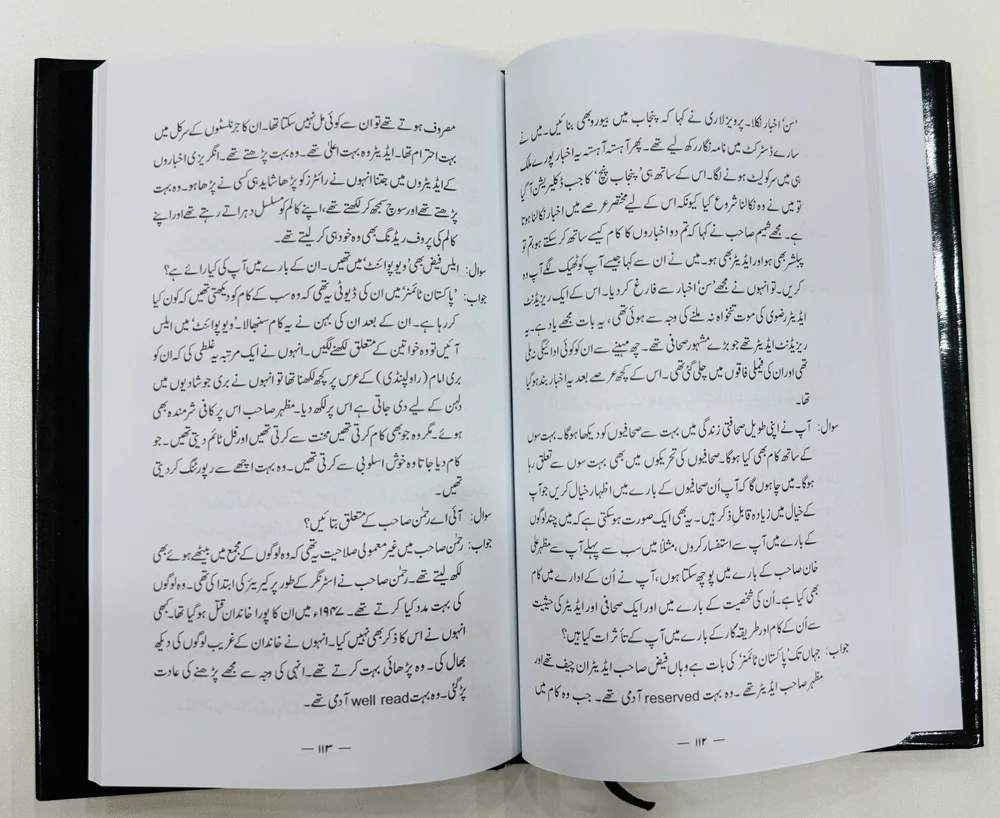 'سن' اخبار نکلا۔ پرویز لاری نے کہا کہ پنجاب میں بیورو بھی بنائیں۔ میں نے
سارے ڈسٹرکٹ میں نامہ نگار رکھ لیے تھے۔ پھر آہستہ آہستہ یہ اخبار پورے ملک
ہی میں سرکولیٹ ہونے لگا۔ اس کے ساتھ ہی 'پنجاب پنچ' کا جب ڈکلیریشن آ گیا
تو میں نے وہ نکالنا شروع کیا کیونکہ اس کے لیے مختصر عرصے میں اخبار نکالنا ہوتا
ہے۔ مجھے شمیم صاحب نے کہا کہ تم دو اخباروں کا کام کیسے ساتھ کر سکتے ہو، تم تو
پبلشر بھی ہو اور ایڈیٹر بھی ہو۔ میں نے ان سے کہا جیسے آپ کو ٹھیک لگے آپ وہ
کریں۔ تو انہوں نے مجھے 'سن' اخبار سے فارغ کر دیا۔ اس کے ایک ریزیڈنٹ
ایڈیٹر رضوی کی موت تنخواہ نہ ملنے کی وجہ سے ہوئی تھی، یہ بات مجھے یاد ہے۔ یہ
ریزیڈنٹ ایڈیٹر تھے جو بڑے مشہور صحافی تھے۔ چھ مہینے سے ان کو کوئی ادائیگی نہ ملی
تھی اور ان کی فیملی فاقوں میں چلی گئی تھی۔ اس کے کچھ عرصے بعد یہ اخبار بند ہو گیا
تھا۔
سوال: آپ نے اپنی طویل صحافتی زندگی میں بہت سے صحافیوں کو دیکھا ہوگا۔ بہت سوں
کے ساتھ کام بھی کیا ہوگا۔ صحافیوں کی تحریکوں میں بھی بہت سوں سے تعلق رہا
ہوگا۔ میں چاہوں گا کہ آپ اُن صحافیوں کے بارے میں اظہار خیال کریں جو آپ
کے خیال میں زیادہ قابلِ ذکر ہیں۔ یہ بھی ایک صورت ہو سکتی ہے کہ میں چند لوگوں
کے بارے میں آپ سے استفسار کروں، مثلاً میں سب سے پہلے آپ سے مظہر علی
خان صاحب کے بارے میں پوچھ سکتا ہوں، آپ نے اُن کے ادارے میں کام
بھی کیا ہے۔ اُن کی شخصیت کے بارے میں اور ایک صحافی اور ایڈیٹر کی حیثیت
سے اُن کے کام اور طریقہ کار کے بارے میں آپ کے تأثرات کیا ہیں؟
جواب: جہاں تک 'پاکستان ٹائمز' کی بات ہے وہاں فیض صاحب ایڈیٹر ان چیف تھے اور
مظہر صاحب ایڈیٹر تھے۔ وہ بہت reserved آدمی تھے۔ جب وہ کام میں
— ۱۱۲ —
مصروف ہوتے تھے تو ان سے کوئی مل نہیں سکتا تھا۔ ان کا جرنلسٹوں کے سرکل میں
بہت احترام تھا۔ ایڈیٹر وہ بہت اعلیٰ تھے۔ وہ بہت پڑھتے تھے۔ انگریزی اخباروں
کے ایڈیٹروں میں جتنا انہوں نے رائٹرز کو پڑھا شاید ہی کسی نے پڑھا ہو۔ وہ بہت
پڑھتے تھے اور سوچ سمجھ کر لکھتے تھے، اپنے کالم کو مسلسل دہراتے رہتے تھے اور اپنے
کالم کی پروف ریڈنگ بھی وہ خود ہی کر لیتے تھے۔
سوال: ایلس فیض بھی 'ویو پوائنٹ' میں تھیں۔ ان کے بارے میں آپ کی کیا رائے ہے؟
جواب: 'پاکستان ٹائمز' میں ان کی ڈیوٹی یہ تھی کہ وہ سب کے کام کو دیکھتی تھیں کہ کون کیا
کر رہا ہے۔ ان کے بعد ان کی بہن نے یہ کام سنبھالا۔ 'ویو پوائنٹ' میں ایلس
آئیں تو وہ خواتین کے متعلق لکھنے لگیں۔ انہوں نے ایک مرتبہ یہ غلطی کی کہ ان کو
بری امام (راولپنڈی) کے عرس پر کچھ لکھنا تھا تو انہوں نے بری جو شادیوں میں
دلہن کے لیے دی جاتی ہے اس پر لکھ دیا۔ مظہر صاحب اس پر کافی شرمندہ بھی
ہوئے۔ مگر وہ جو بھی کام کرتی تھیں محنت سے کرتی تھیں اور فل ٹائم دیتی تھیں۔ جو
کام دیا جاتا وہ خوش اسلوبی سے کرتی تھیں۔ وہ بہت اچھے سے رپورٹنگ کر دیتی
تھیں۔
سوال: آئی اے رحمٰن صاحب کے متعلق بتائیں؟
جواب: رحمٰن صاحب میں غیر معمولی صلاحیت یہ تھی کہ وہ لوگوں کے مجمع میں بیٹھے ہوئے بھی
لکھ لیتے تھے۔ رحمٰن صاحب نے اسٹرنگر کے طور پر کیریئر کی ابتدا کی تھی۔ وہ لوگوں
کی بہت مدد کیا کرتے تھے۔ ۱۹۴۷ء میں ان کا پورا خاندان قتل ہو گیا تھا۔ کبھی
انہوں نے اس کا ذکر بھی نہیں کیا۔ انہوں نے خاندان کے غریب لوگوں کی دیکھ
بھال کی۔ وہ پڑھائی بہت کرتے تھے۔ انہی کی وجہ سے مجھے پڑھنے کی عادت
پڑ گئی۔ وہ بہت well read آدمی تھے۔
— ۱۱۳ —